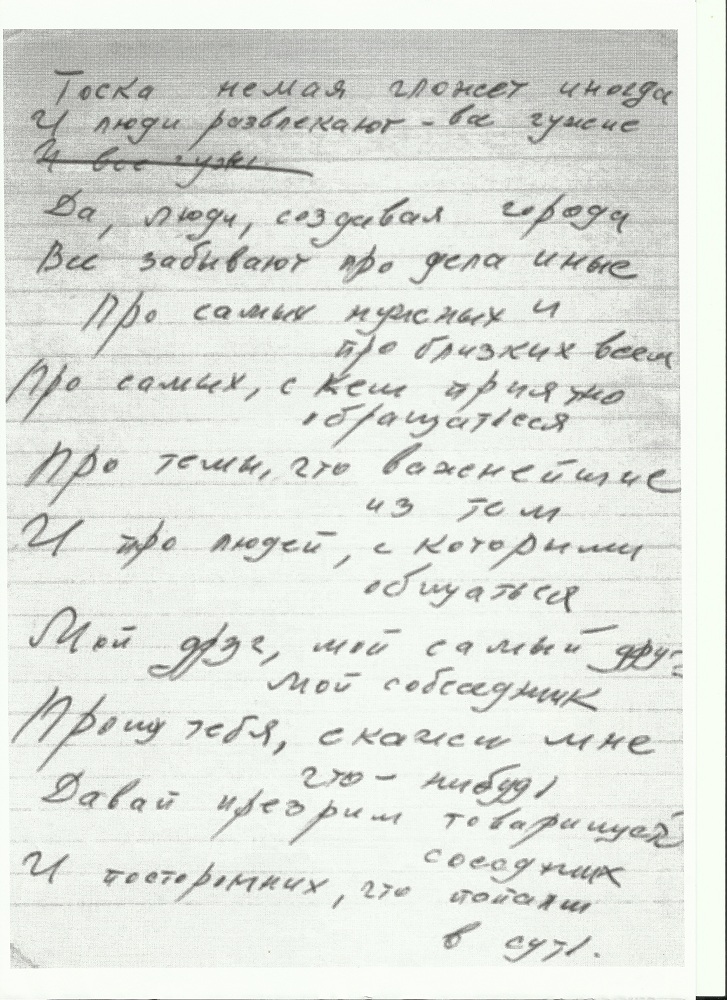 Тоска немая гложет иногда
И люди развлекают - все чужие
И все чужи
Да, люди, создавая города
Все забывают про дела иные
Про самых нужных и
про близких всем
Про самых, с кем приятно
обращаться
Про темы, что важнейшие
из тем
И про людей, с которыми
общаться
Мой друг, мой самый друг
мой собеседник
Прошу тебя, скажи мне
что-нибудь
Давай презрим товарищей
соседних
И посторонних, что попали
в суть.